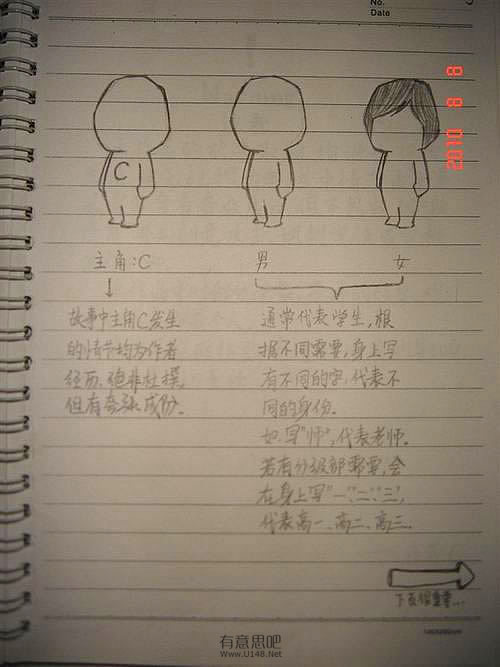 No.
Date
2010 8 8
C
主角:C
男
女
故事中主角C发生
的情节均为作者
经历,绝非杜撰,
但有夸张成份。
通常代表学生,根
据不同需要,身上写
有不同的字,代表不
同的身份。
如.写"师",代表老师。
若有分级部需要,会
在身上写"一""二""三",
代表高一、高二、高三.
下页很重要...
有意思吧
Www.U148.Net